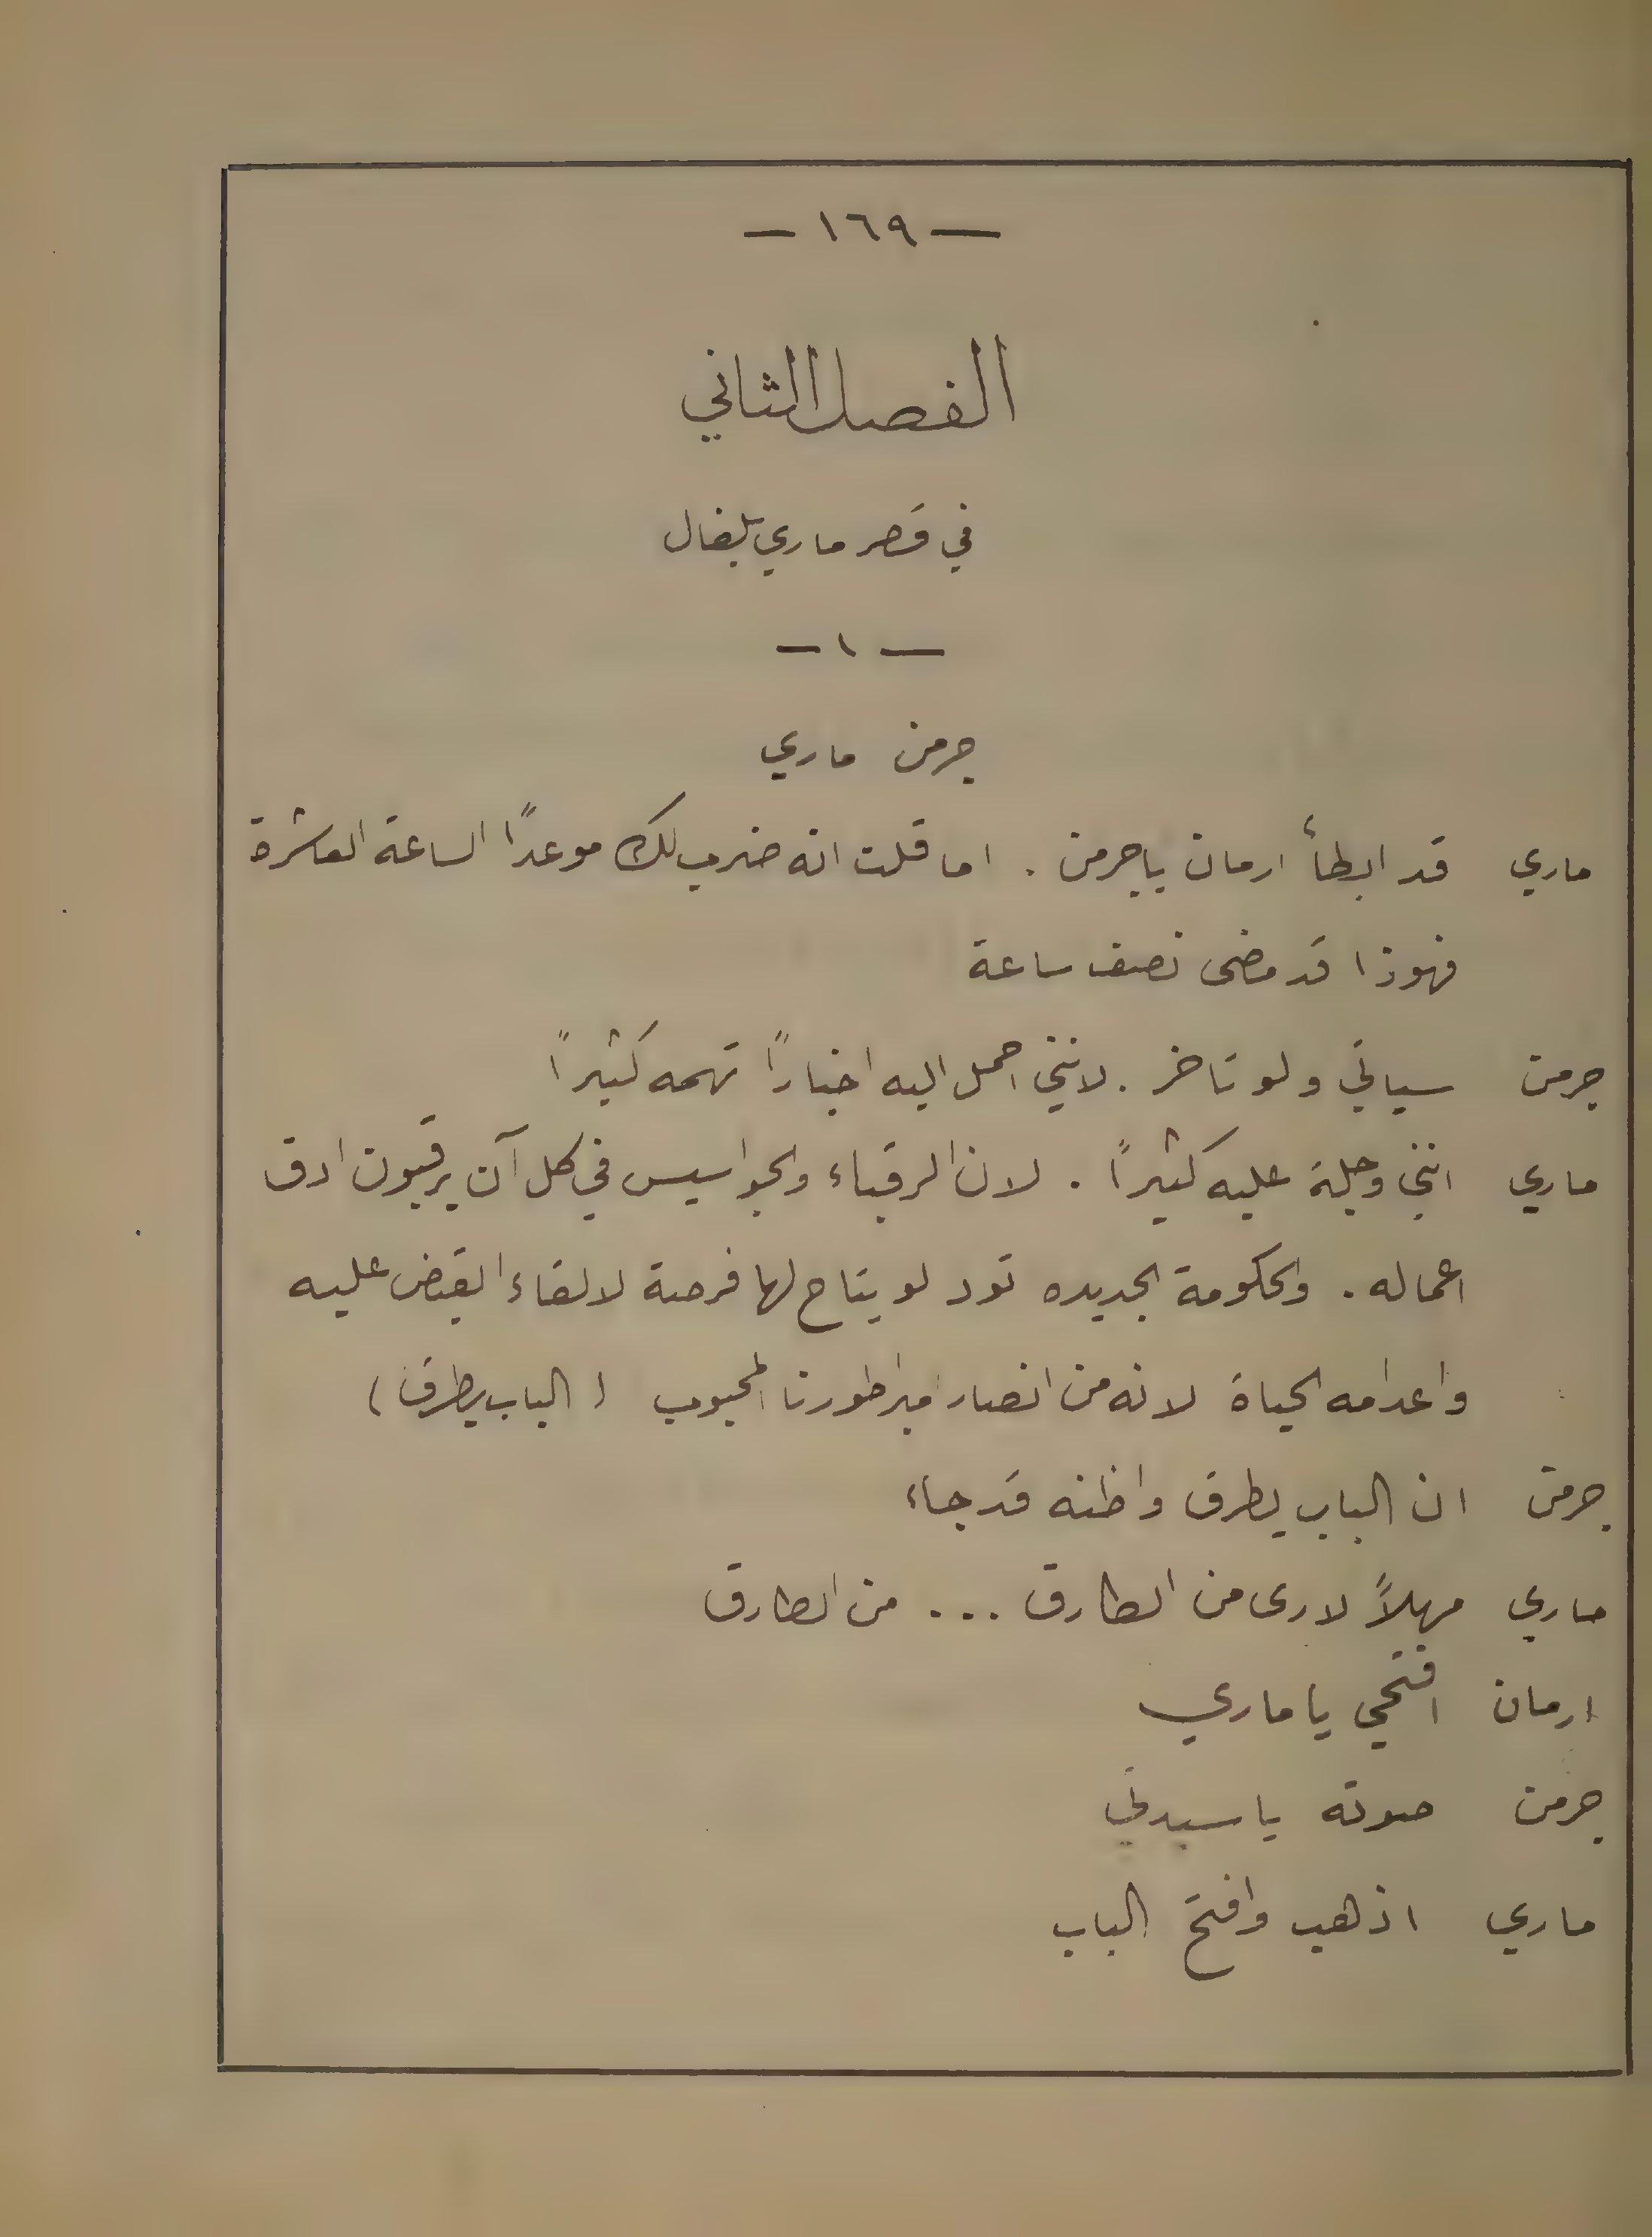 — ١٦٩ —
الفصل الثاني
في قصر ماري بلغال
— ١ —
جرمن ماري
ماري قد ابطأ ارمان ياجرمن . اما قلت انه ضرب لك موعدًا الساعة العاشرة
فهوذا قد مضى نصف ساعة
جرمن سياتي ولو تاخر . لانني احمل اليه اخبارًا تهمه كثيرًا
ماري انني وجلة عليه كثيرًا . لان الرقباء والجواسيس في كل آن يرقبون ادق
اعماله . والحكومة الجديده تود لو يتاح لها فرصة لالقاء القبض عليه
واعدامه الحياة لانه من انصار امبراطورنا المحبوب ( الباب يطرق )
جرمن ان الباب يطرق واظنه قد جاء
ماري مهلاً لارى من الطارق ... من الطارق
ارمان افتحي يا ماري
جرمن صوته يا سيدتي
ماري اذهب وافتح الباب